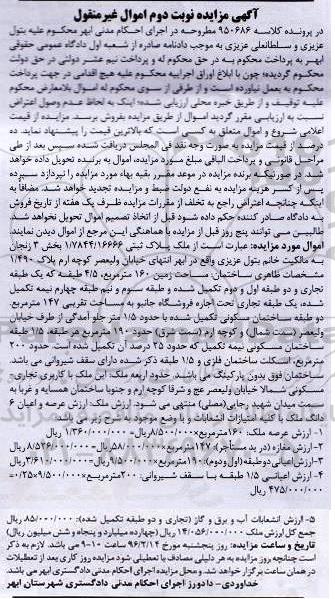 آگهی مزایده نوبت دوم اموال غیرمنقول
در پرونده کلاسه ۹۵۰۶۸۶ مطروحه در اجرای احکام مدنی ابهر محکوم علیه بتول
عزیزی و سلطانعلی عزیزی به موجب دادنامه صادره از شعبه اول دادگاه عمومی حقوقی
ابهر به پرداخت محکوم به در حق محکوم له و پرداخت نیم عشر دولتی در حق دولت
محکوم گردیده؛ چون با ابلاغ اوراق اجراییه محکوم علیه هیچ اقدامی در جهت پرداخت
محکوم به بعمل نیاورده است و از طرفی از سوی محکوم له اموال بلامعارض محکوم
علیه توقیف و از طریق خبره محلی ارزیابی شده؛ اینک به لحاظ عدم وصول اعتراض
نسبت به ارزیابی مقرر گردید اموال از طریق مزایده بفروش برسد. مزایده از قیمت
اعلامی شروع و اموال متعلق به کسی است که بالاترین قیمت را پیشنهاد نماید. ده
درصد از قیمت مزایده به صورت وجه نقد فی المجلس دریافت شده سپس بعد از طی
مراحل قانونی و پرداخت الباقی مبلغ مورد مزایده، اموال به برنده تحویل داده خواهد
شد. در صورتیکه برنده مزایده در موعد مقرر بقیه بهاء مورد مزایده را نپردازد سپرده
پس از کسر هزینه مزایده به نفع دولت ضبط و مزایده تجدید خواهد شد. مضافا به
اینکه چنانچه اعتراض راجع به تخلف از مقررات مزایده ظرف یک هفته از تاریخ فروش
به دادگاه صادر کننده حکم داده شود قبل از اتخاذ تصمیم اموال تحویل نخواهد شد
طالبین می توانند پنج روز قبل از مزایده با هماهنگی این مرجع از اموال دیدن نمایند
اموال مورد مزایده: عبارت است از ملک پلاک ثبتی ۱/۷۸۴۴/۱۶۶۶۶ بخش ۳ زنجان
به مالکیت خانم بتول عزیزی واقع در ابهر انتهای خیابان ولیعصر کوچه ارم پلاک ۱/۴۹۰
مشخصات ظاهری ساختمان: مساحت زمین ۱۶۰ مترمربع، ۴/۵ طبقه که یک طبقه
تجاری و دو طبقه اول و دوم تکمیل شده و طبقه سوم و نیم طبقه چهارم نیمه تکمیل
شده، یک طبقه تجاری تحت اجاره فروشگاه جانبو به مساحت تقریبی ۱۴۷ مترمربع.
دو طبقه ساختمان مسکونی تکمیل شده با حدود ۱/۵ متر جلو آمدگی از طرف خیابان
ولیعصر (سمت شمال) و کوچه ارم (سمت شرق) حدود ۱۹۰ مترمربع هر طبقه، ۱/۵ طبقه
ساختمان مسکونی نیمه تکمیل که حدود ۲۵ درصد آن تکمیل شده است. حدود ۲۰۰
مترمربع، اسکلت ساختمان فلزی و ۱/۵ طبقه ذکر شده دارای سقف شیروانی می باشد.
ساختمان فوق بدون پارکینگ می باشد. حدود اربعه ملک: این ملک با کاربری تجاری-
مسکونی شمالا خیابان ولیعصر عج و شرقا کوچه ارم و جنوبا ساختمان همسایه و غربا به
سمت میدان شهید رجایی(مصلی) منتهی می شود. ارزش ملک: ارزش عرصه و اعیان ۶
دانگ ملک با کلیه امتیازات انشعابات و با وضع موجود به شرح زیر می باشد.
۱- ارزش عرصه ملک: ۱۶۰مترمربع×۸/۵۰۰/۰۰۰ریال=۱/۳۶۰/۰۰۰/۰۰۰ ریال
۵- ارزش انشعابات آب و برق و گاز (تجاری و دو طبقه تکمیل شده): ۸۵/۰۰۰/۰۰۰ ریال
جمع کل ارزش ملک ۱۴/۰۵۶/۰۰۰/۰۰۰ ریال (چهارده میلیارد و پنجاه و شش میلیون ریال)
تاریخ و ساعت مزایده: روز پنجشنبه مورخ ۹۶/۲/۱۴ ساعت ۱۰-۹ می باشد. لازم به ذکر
است چنانچه روز مزایده به هر دلیلی مصادف با تعطیلی شود مزایده روز کاری بعد از تعطیلات
در همان ساعت برگزار خواهد شد. و محل مزایده اجرای احکام مدنی دادگستری ابهر می باشد.
خداوردی- دادورز اجرای احکام مدنی دادگستری شهرستان ابهر